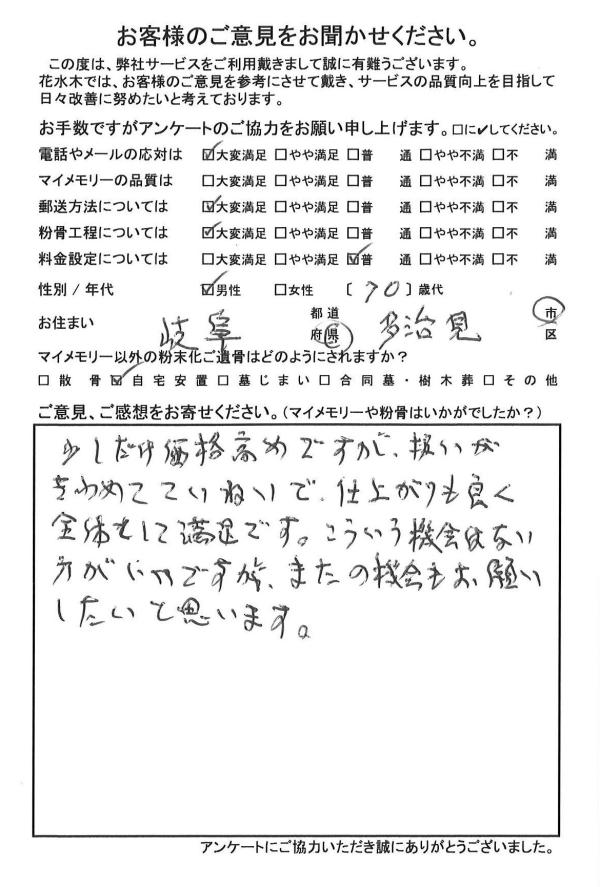 お客様のご意見をお聞かせください。
この度は、弊社サービスをご利用戴きまして誠に有難うございます。
花水木では、お客様のご意見を参考にさせて戴き、サービスの品質向上を目指して
日々改善に努めたいと考えております。
お手数ですがアンケートのご協力をお願い申し上げます。□に✔してください。
電話やメールの応対は ☑大変満足 □やや満足 □普　通 □やや不満 □不　満
マイメモリーの品質は □大変満足 □やや満足 □普　通 □やや不満 □不　満
郵送方法については ☑大変満足 □やや満足 □普　通 □やや不満 □不　満
粉骨工程については ☑大変満足 □やや満足 □普　通 □やや不満 □不　満
料金設定については □大変満足 □やや満足 ☑普　通 □やや不満 □不　満
性別 / 年代 ☑男性 □女性 〔 70 〕歳代
お住まい 岐阜 都道府県 多治見 市区
マイメモリー以外の粉末化ご遺骨はどのようにされますか？
□散　骨 ☑自宅安置 □墓じまい □合同墓・樹木葬 □その他
ご意見、ご感想をお寄せください。(マイメモリーや粉骨はいかがでしたか？)
少しだけ価格高めですが、扱いが
きわめてていねいで、仕上がりも良く
全体として満足です。こういう機会はない
方がいいですが、またの機会もお願い
したいと思います。
アンケートにご協力いただき誠にありがとうございました。